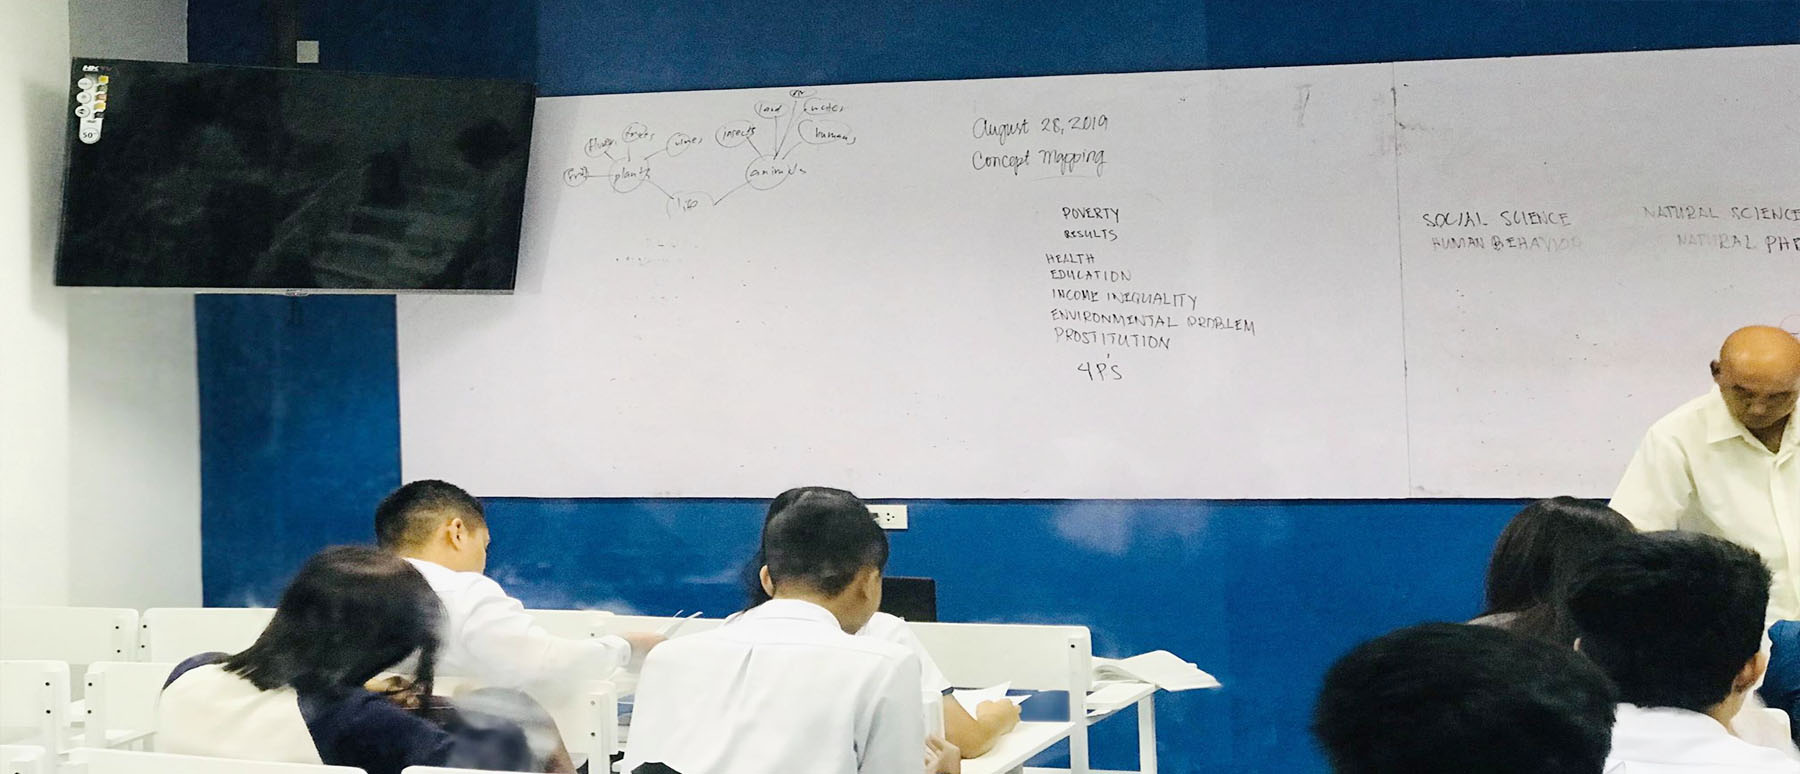 HKTV
50"
air
land
insects
humans
trees
vines
fruit
plants
animals
life
August 28, 2019
Concept Mapping
POVERTY
RESULTS
HEALTH
EDUCATION
INCOME INEQUALITY
ENVIRONMENTAL PROBLEM
PROSTITUTION
4P'S
SOCIAL SCIENCE
HUMAN BEHAVIOR
NATURAL SCIENCE
NATURAL PH